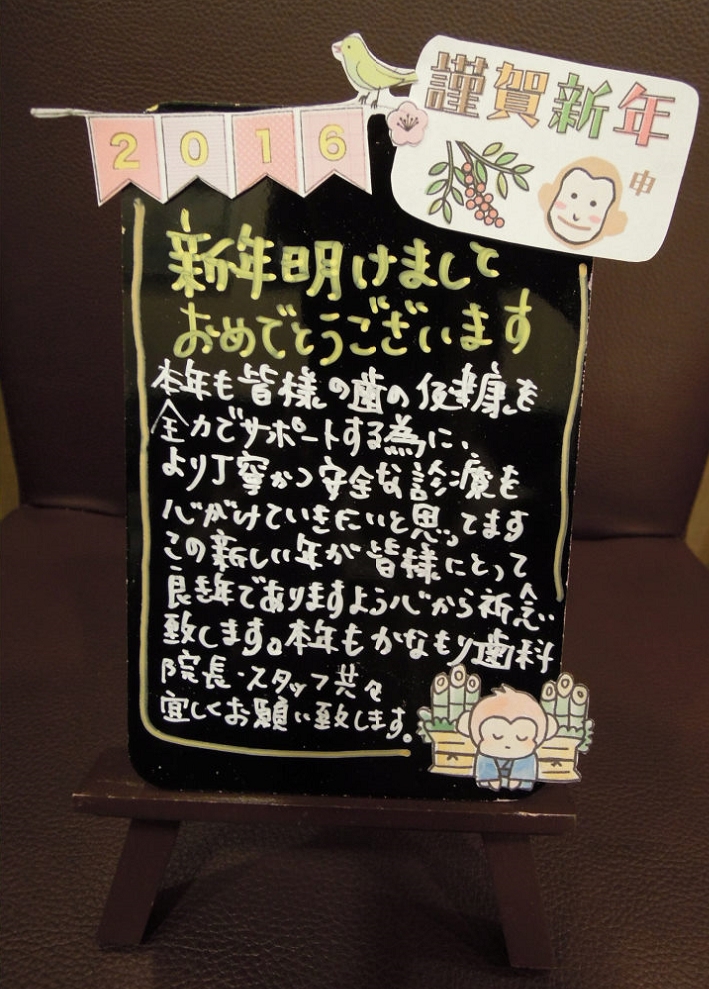 謹賀新年
申
2016
新年明けまして
おめでとうございます
本年も皆様の歯の健康を
全力でサポートする為に、
より丁寧かつ安全な診療を
心がけていきたいと思ってます
この新しい年が皆様にとって
良き年でありますよう心から祈念
致します。本年もかなもり歯科
院長・スタッフ共々
宜しくお願い致します。